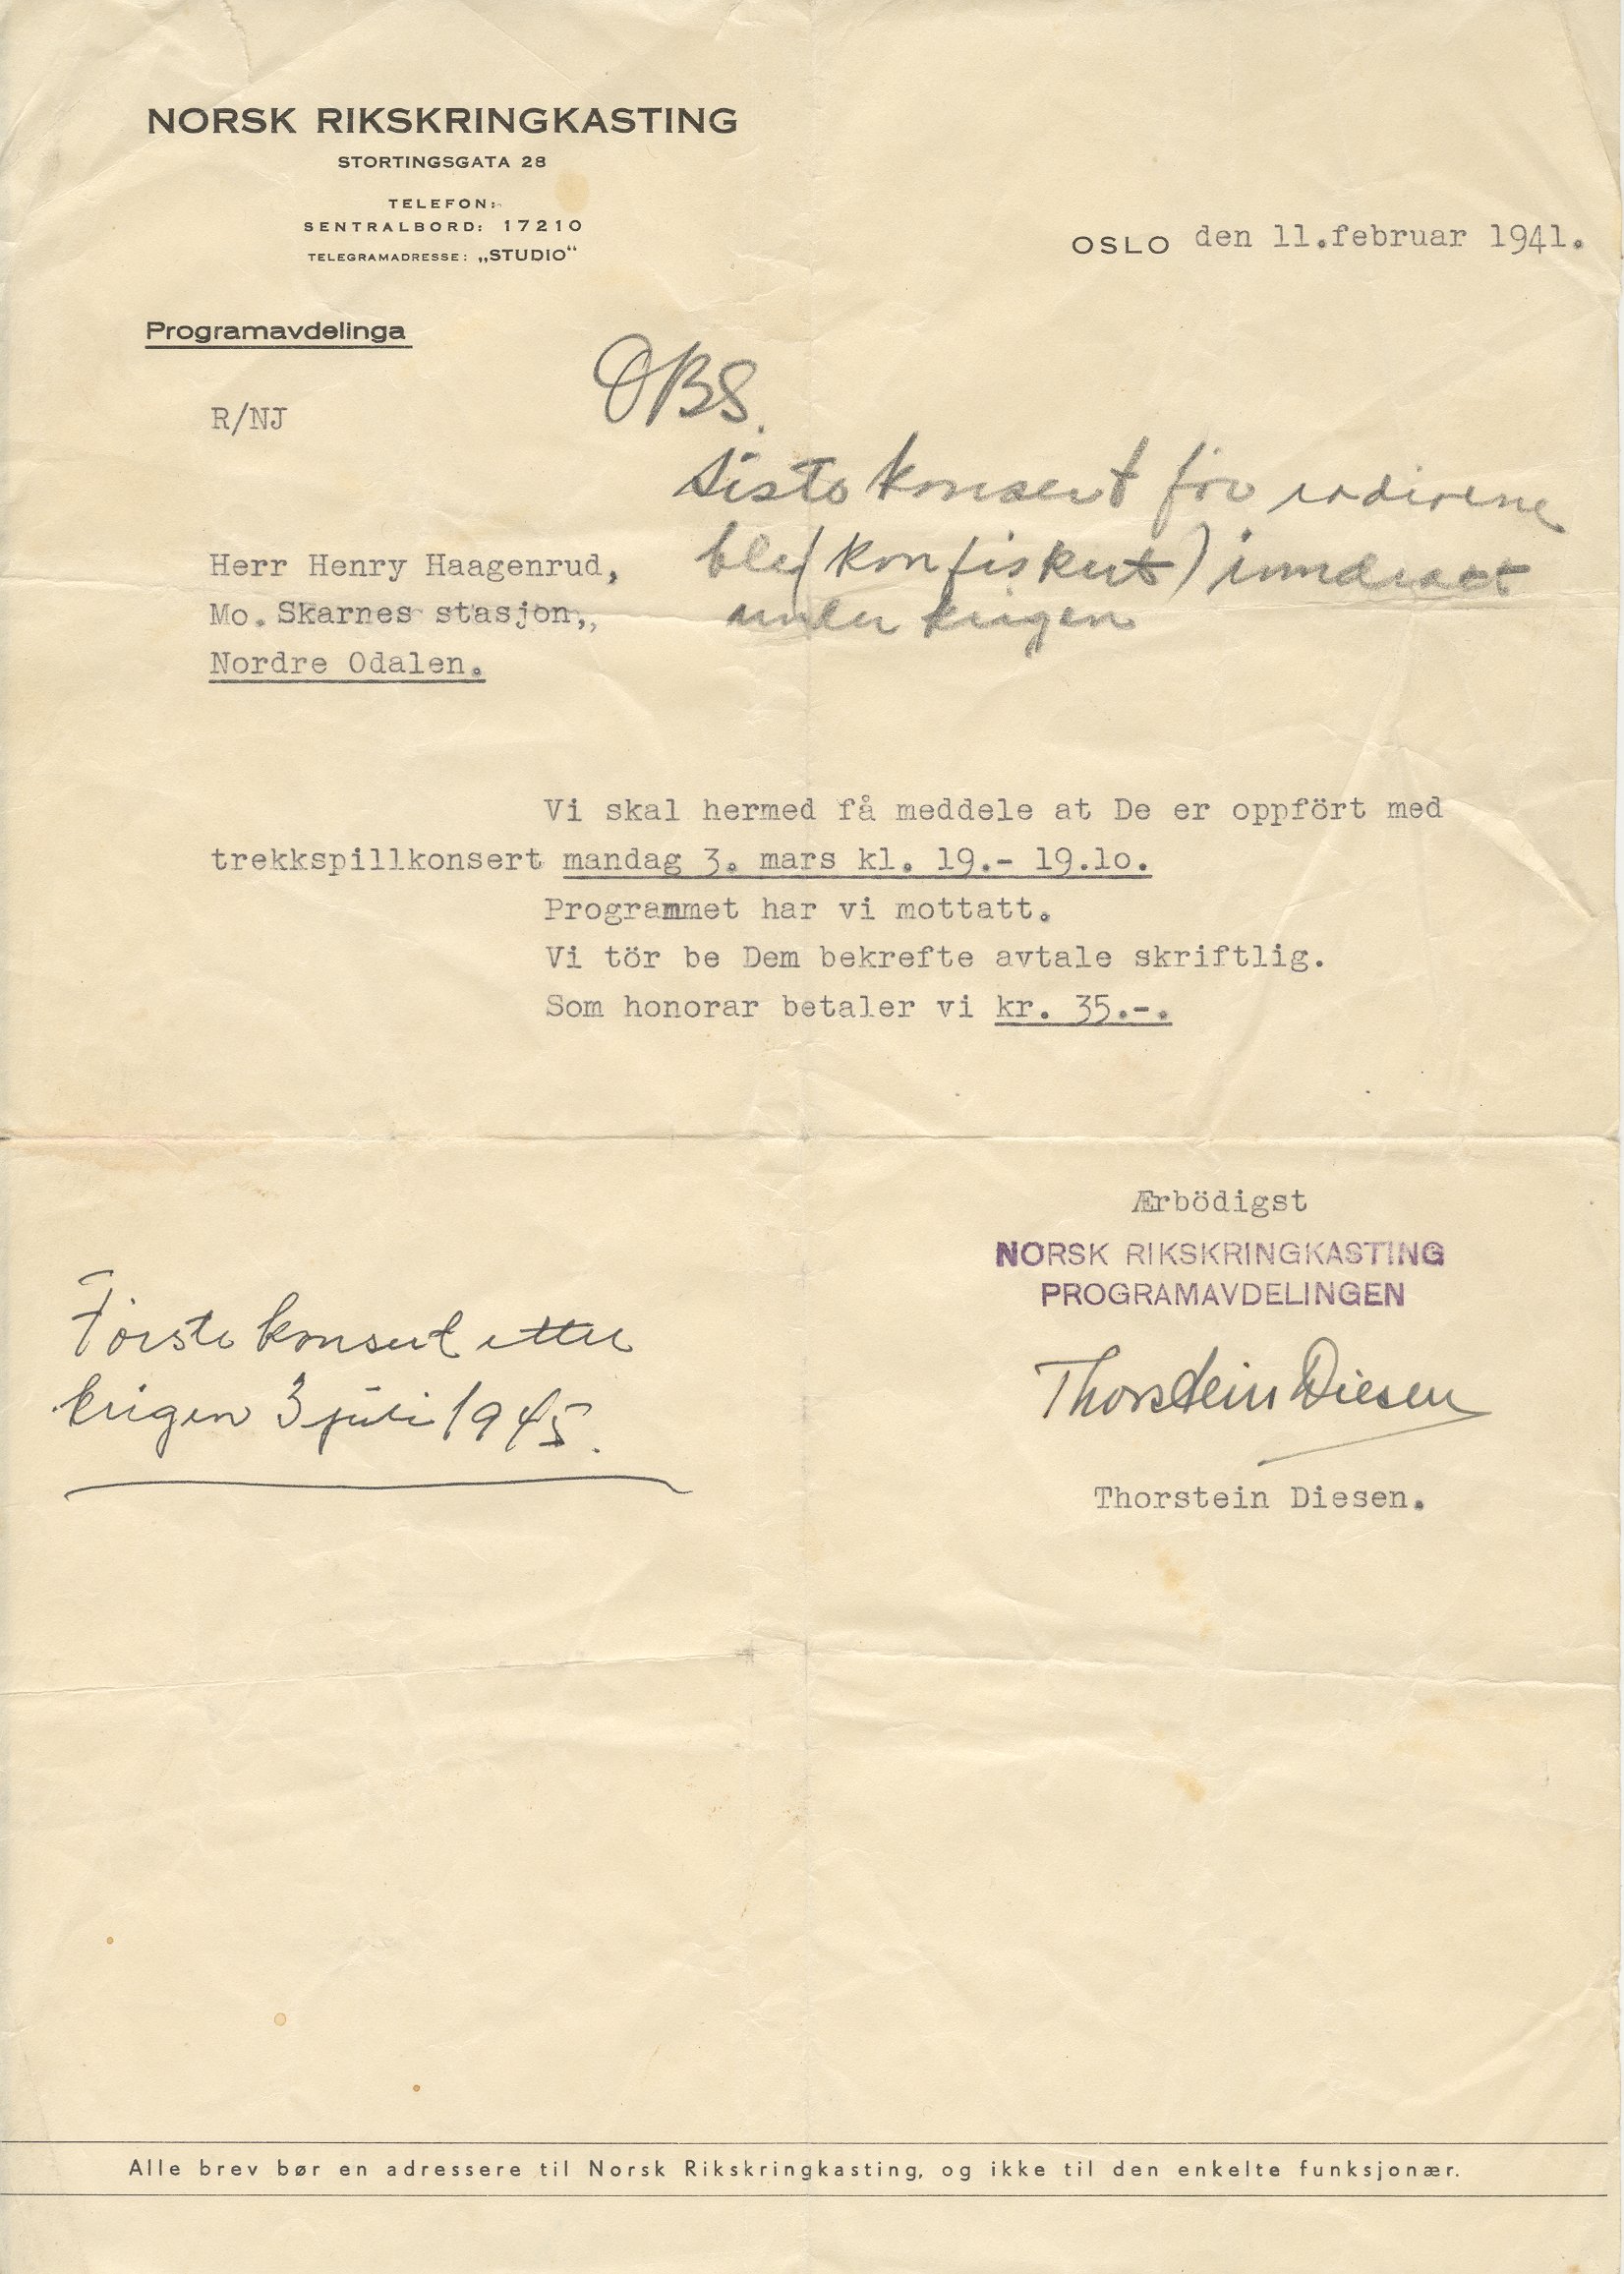 NORSK RIKSKRINGKASTING
STORTINGSGATA 28
TELEFON:
SENTRALBORD: 17210
TELEGRAMADRESSE: „STUDIO“
OSLO den 11.februar 1941.
Programavdelinga
R/NJ
OBS.
Siste konsert før radioene
ble (konfiskert) inndratt
under krigen
Herr Henry Haagenrud,
Mo. Skarnes stasjon,,
Nordre Odalen.
Vi skal hermed få meddele at De er oppfört med
trekkspillkonsert mandag 3. mars kl. 19.- 19.lo.
Programmet har vi mottatt.
Vi tör be Dem bekrefte avtale skriftlig.
Som honorar betaler vi kr. 35.-.
Ærbödigst
NORSK RIKSKRINGKASTING
PROGRAMAVDELINGEN
Thorstein Diesen
Thorstein Diesen.
Første konsert etter
krigen 3 juli 1945.
Alle brev bør en adressere til Norsk Rikskringkasting, og ikke til den enkelte funksjonær.